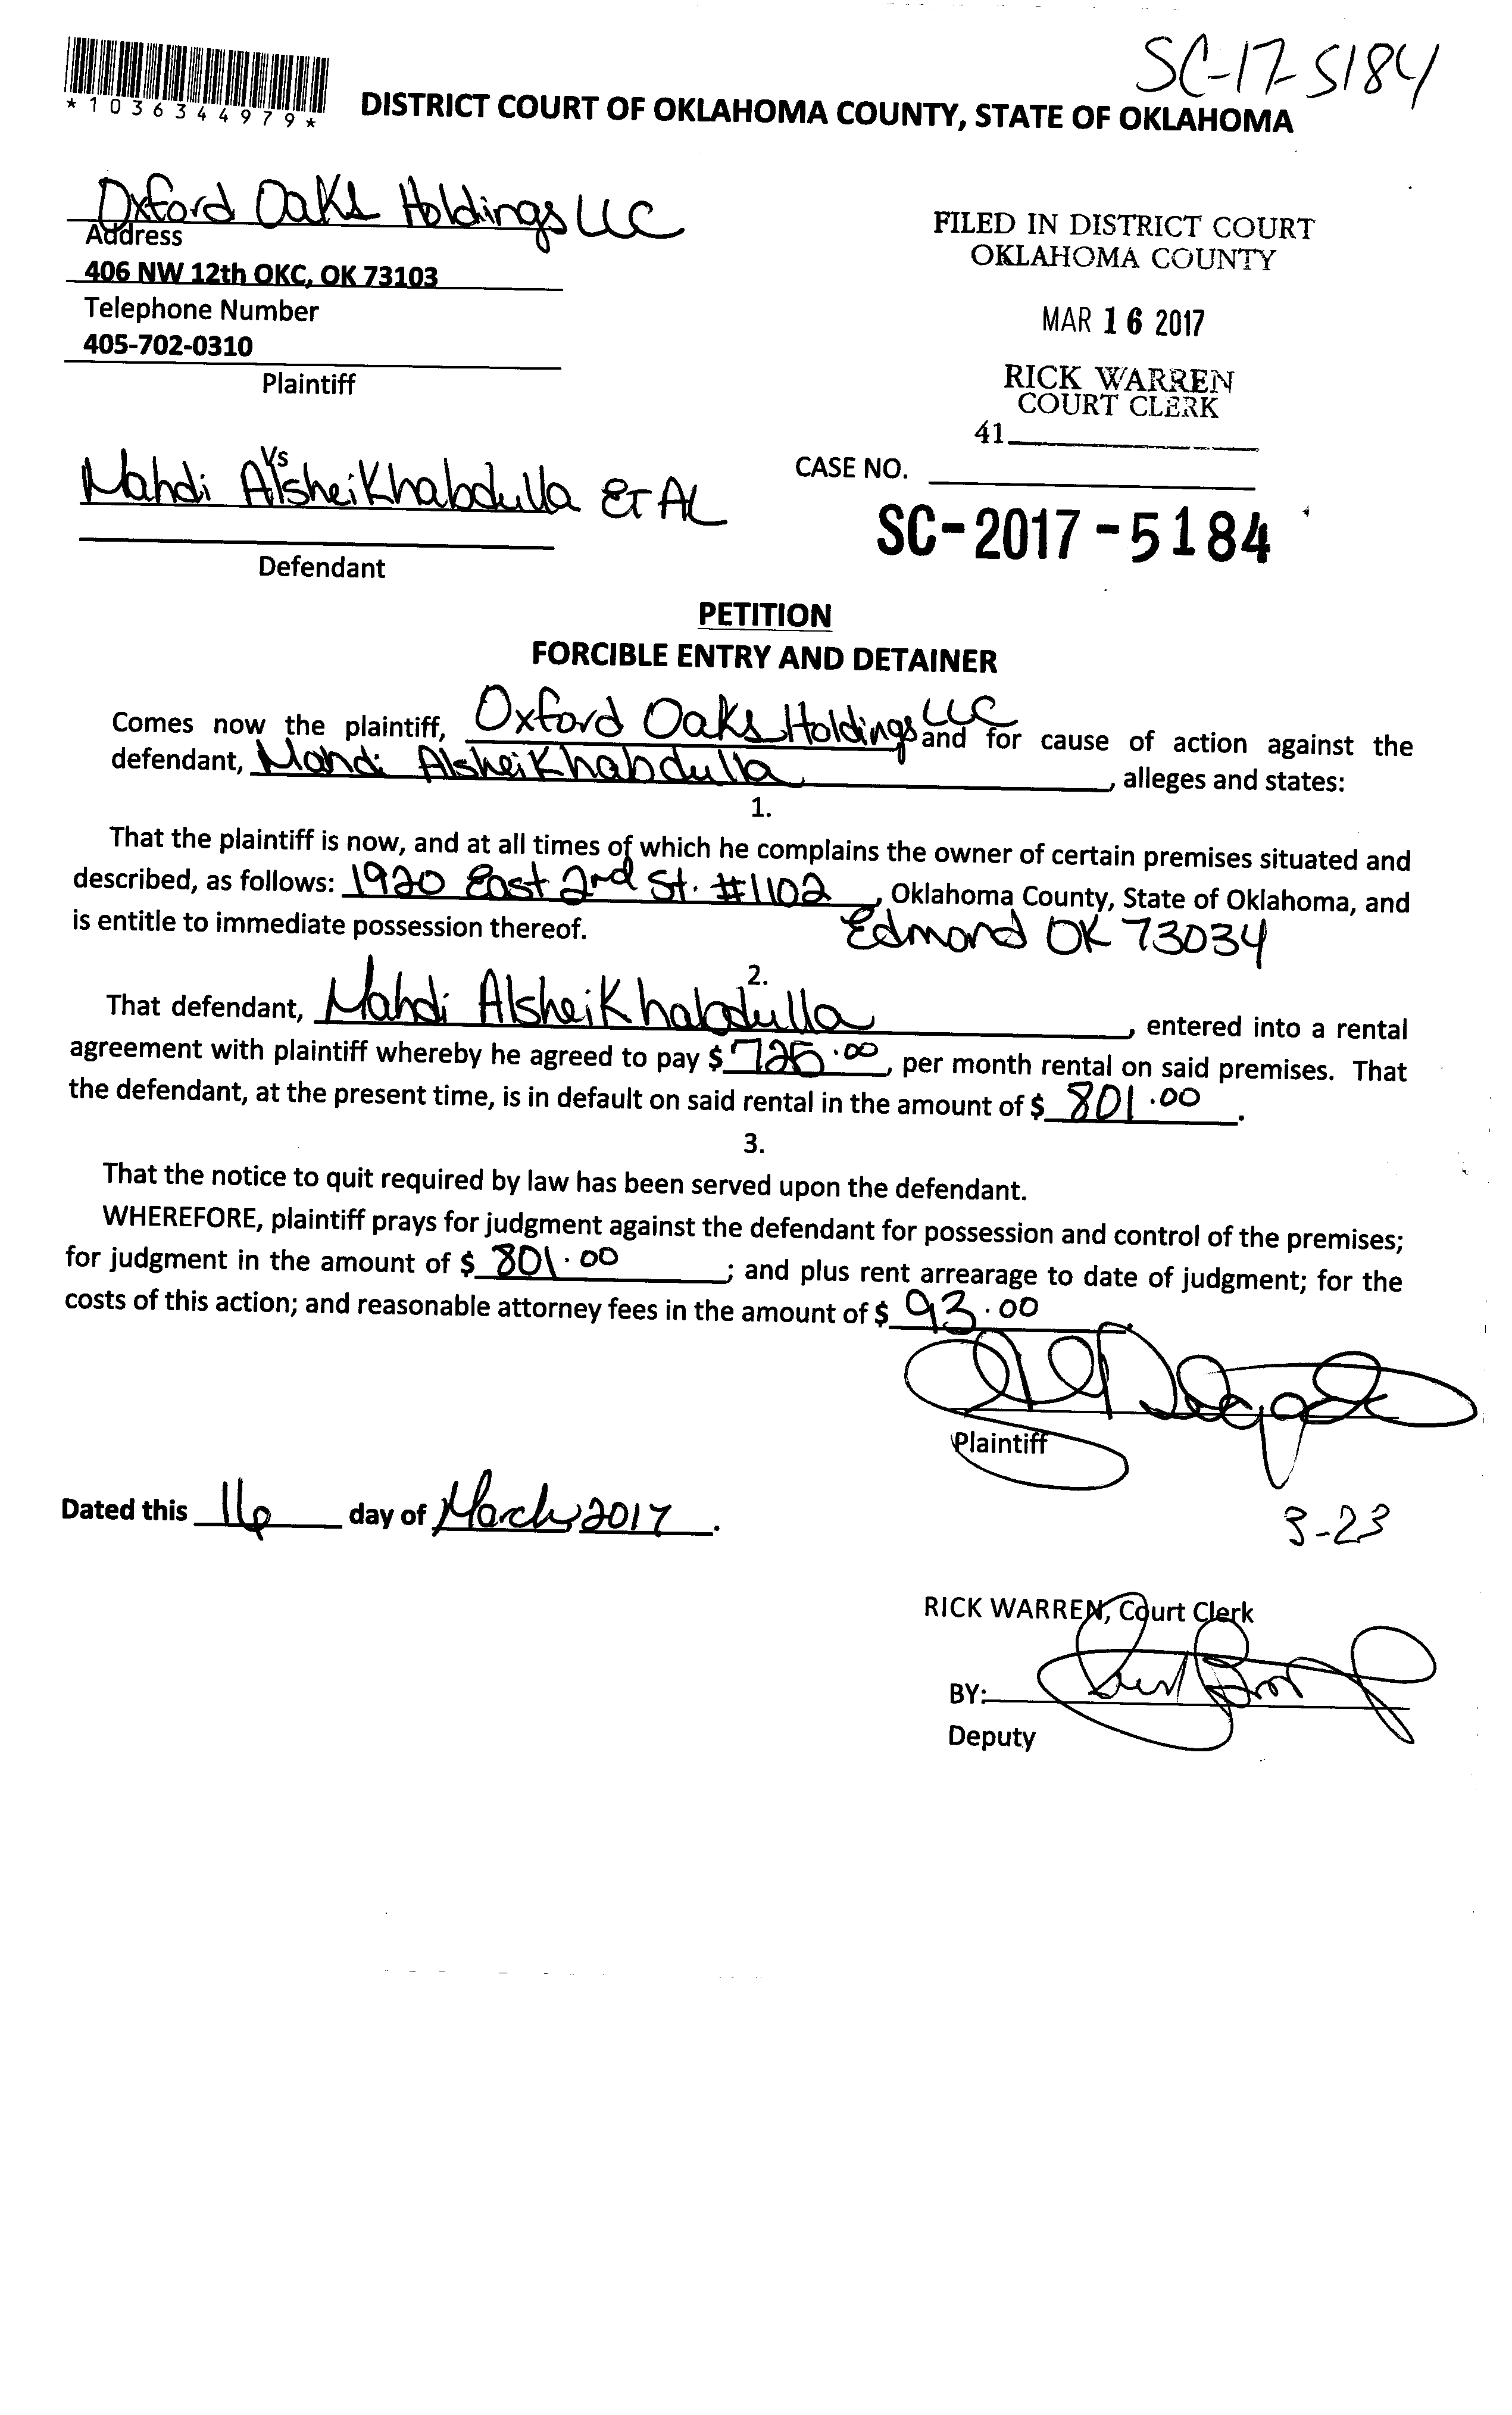 SC-17-5184
*1036344979*
DISTRICT COURT OF OKLAHOMA COUNTY, STATE OF OKLAHOMA
Oxford Oaks Holdings LLC
Address
406 NW 12th OKC, OK 73103
Telephone Number
405-702-0310
Plaintiff
FILED IN DISTRICT COURT
OKLAHOMA COUNTY
MAR 16 2017
RICK WARREN
COURT CLERK
41
Vs
Mahdi Alsheikhabdulla Et AL
Defendant
CASE NO.
SC-2017-5184
PETITION
FORCIBLE ENTRY AND DETAINER
Comes now the plaintiff, Oxford Oaks Holdings LLC and for cause of action against the
defendant, Mahdi Alsheikhabdulla, alleges and states:
1.
That the plaintiff is now, and at all times of which he complains the owner of certain premises situated and
described, as follows: 1920 East 2nd St. #1102, Oklahoma County, State of Oklahoma, and
is entitle to immediate possession thereof. Edmond OK 73034
2.
That defendant, Mahdi Alsheikhabdulla, entered into a rental
agreement with plaintiff whereby he agreed to pay $725.00, per month rental on said premises. That
the defendant, at the present time, is in default on said rental in the amount of $801.00.
3.
That the notice to quit required by law has been served upon the defendant.
WHEREFORE, plaintiff prays for judgment against the defendant for possession and control of the premises;
for judgment in the amount of $801.00; and plus rent arrearage to date of judgment; for the
costs of this action; and reasonable attorney fees in the amount of $93.00
Plaintiff
Dated this 16 day of March, 2017.
3-23
RICK WARREN, Court Clerk
BY:
Deputy